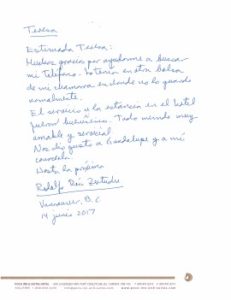 Teresa
Estimada Teresa:
Muchas gracias por ayudarme a buscar
mi teléfono. Lo tenía en otra bolsa
de mi chamarra en donde no lo guardo
normalmente.
El servicio y la estancia en el hotel
fueron buenísimos. Todo mundo muy
amable y servicial
Nos dio gusto a Guadalupe y a mi
conocerla
Hasta la próxima
Rodolfo
Vancouver, B.C.
14 junio 2017